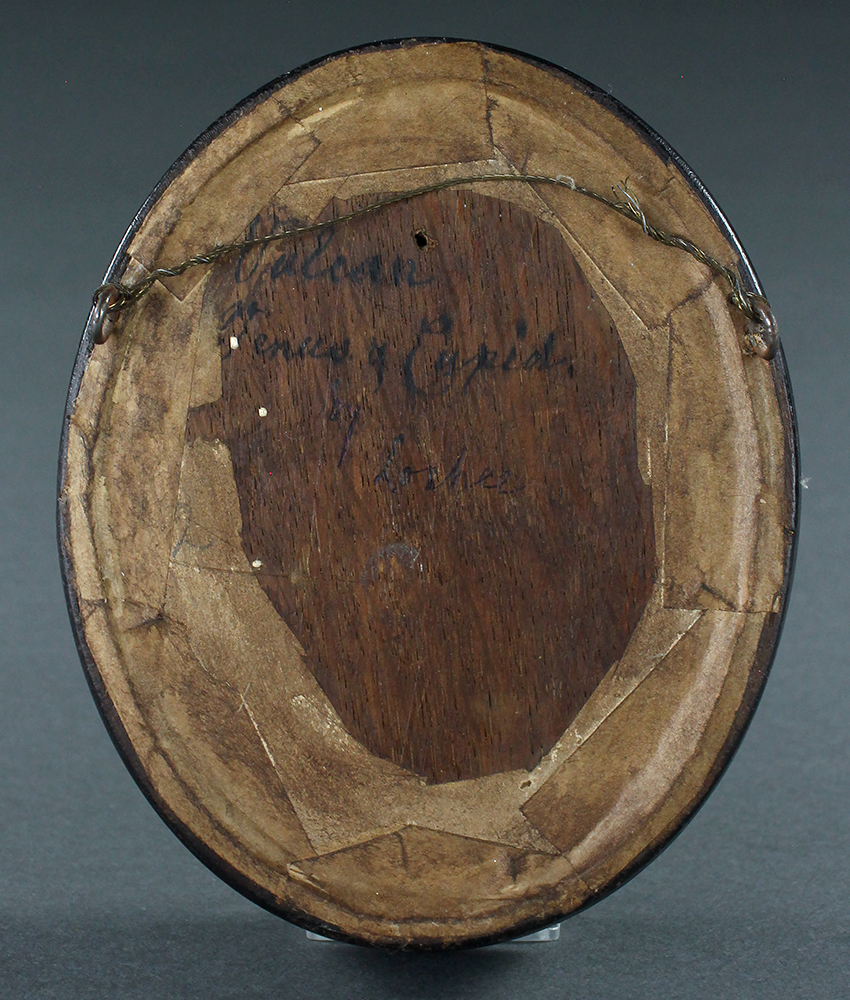 Vulcan
Venus & Cupid.
by